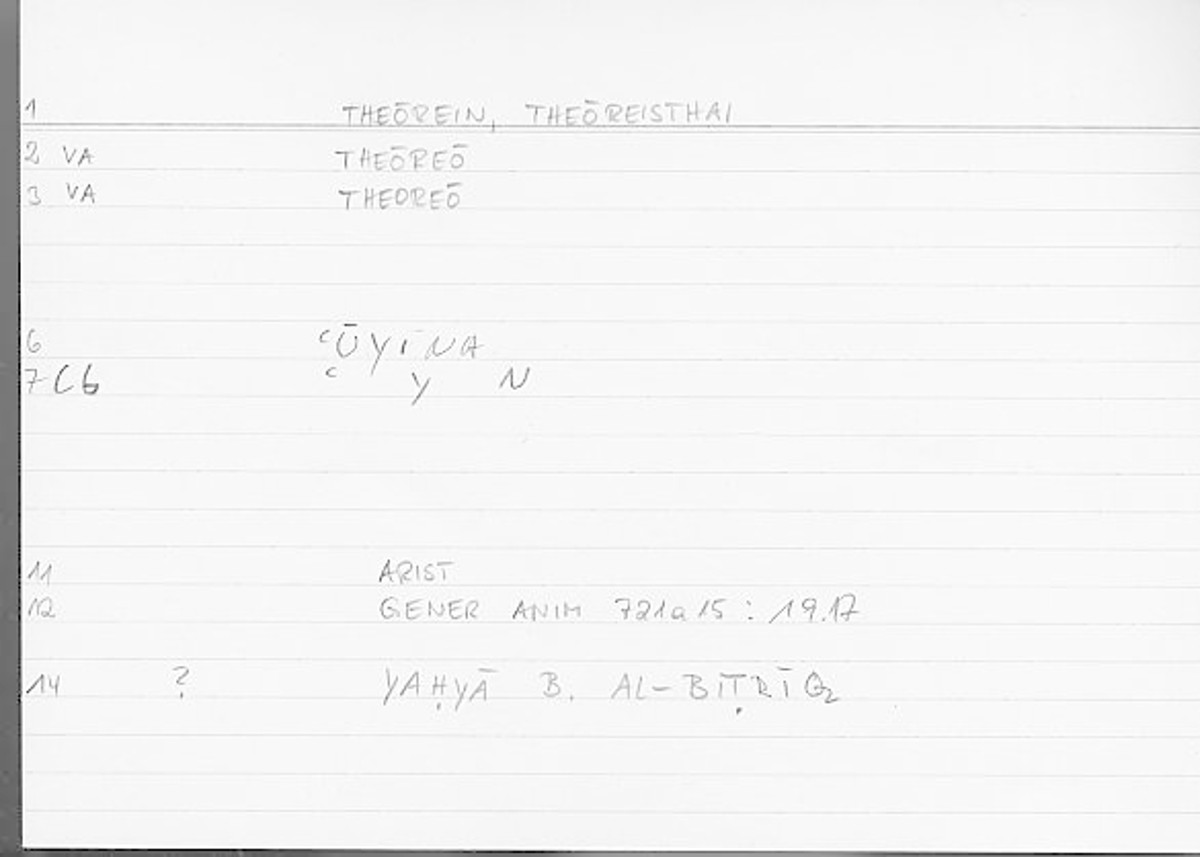 1 THEŌREIN, THEŌREISTHAI
2 VA THEŌREŌ
3 VA THEOREŌ
6 ʿŪYINA
7 C6 ʿ Y N
11 ARIST
12 GENER ANIM 721a15 : 19.17
14 ? YAḤYĀ B. AL-BIṬRĪQ